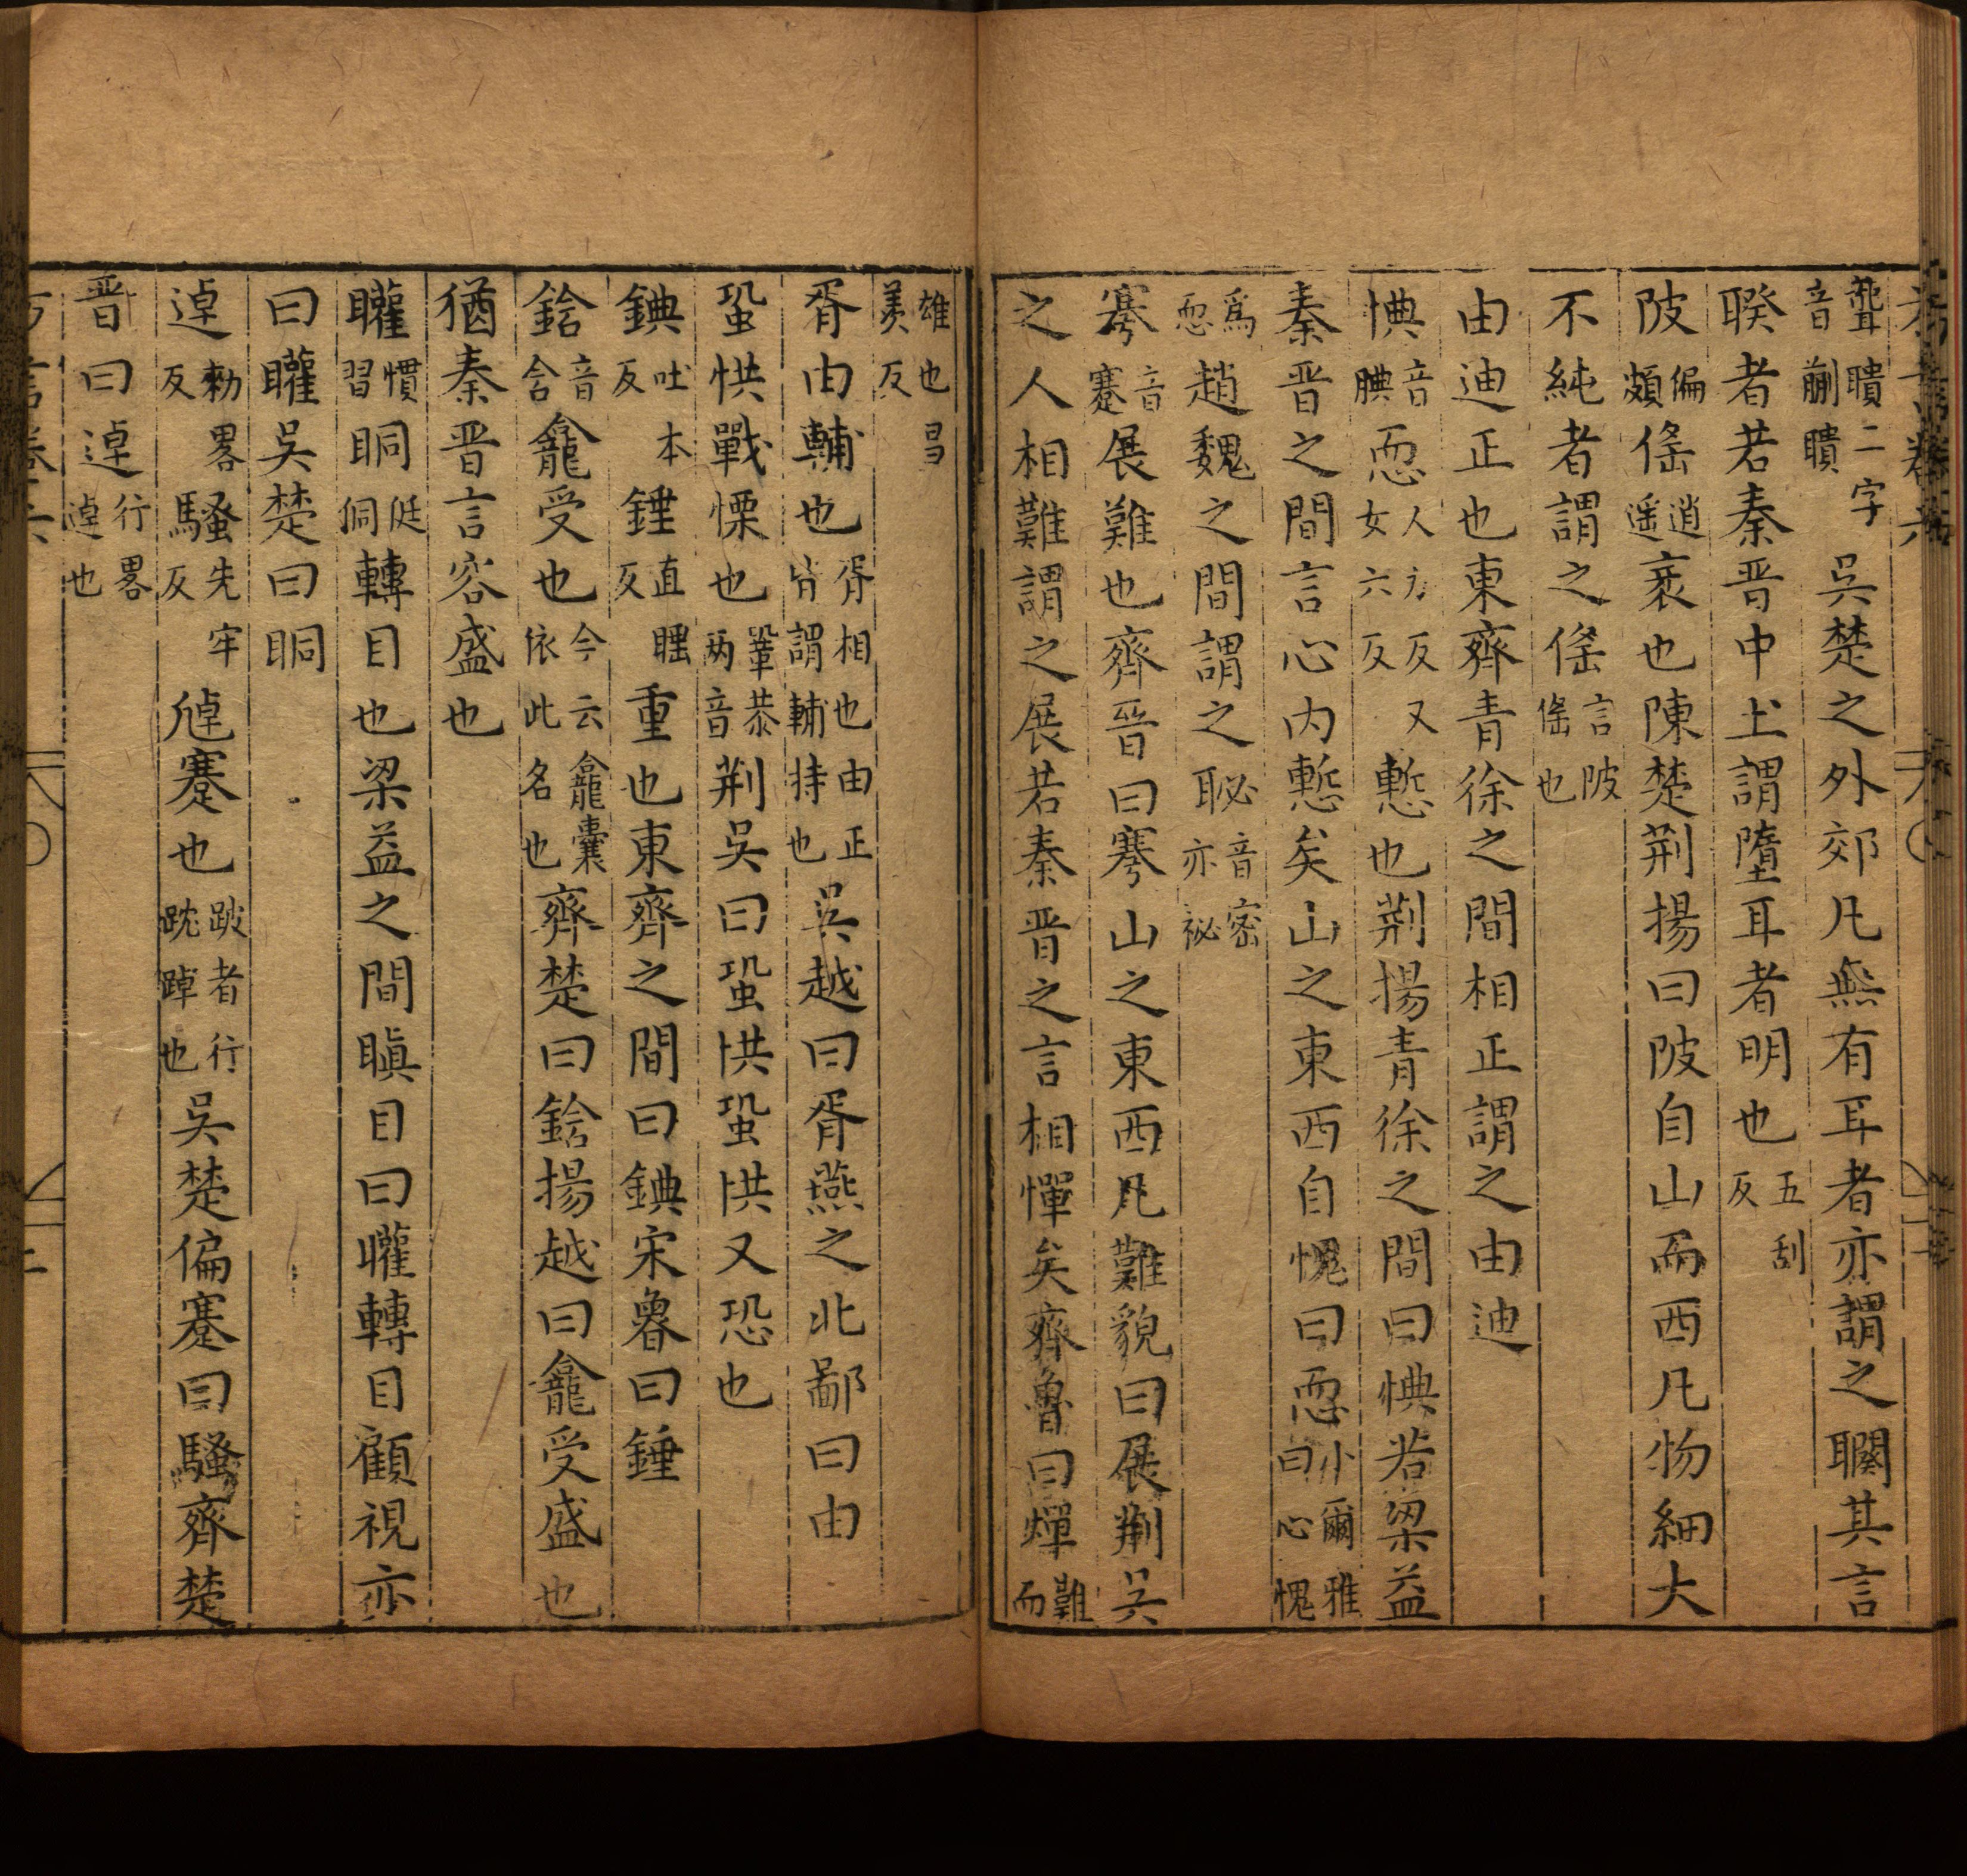 聾聵二字音蒯聵吳楚之外郊凡無有耳者亦謂之䦱其言
睽者若秦晋中土謂墮耳者明也五刮反
陂偏頗傜逍遥衺也陳楚荆揚曰陂自山而西凡物細大
不純者謂之傜言陂傜也
由迪正也東齊青徐之間相正謂之由迪
㥏音腆恧人力反又女六反慙也荆揚青徐之間曰㥏若梁益
秦晋之間言心内慙矣山之東西自愧曰恧小爾雅曰心愧
爲恧趙魏之間謂之䏟音密亦祕
謇音蹇展難也齊晋曰謇山之東西凡難貌曰展荆吳
之人相難謂之展若秦晋之言相憚矣齊魯曰燀難而
雄也昌羨反
胥由輔也胥相也由正皆謂輔持也吳越曰胥燕之北鄙曰由
蛩㤨戰慄也鞏恭两音荆吳曰蛩㤨蛩㤨又恐也
錪吐本反錘直睡反重也東齊之間曰錪宋魯曰錘
鋡音含龕受也今云龕囊依此名也齊楚曰鋡揚越曰龕受盛也
猶秦晋言容盛也
矔慣習眮侹侗轉目也梁益之間瞋目曰矔轉目顧視亦
曰矔吳楚曰眮
逴勑畧反騷先牢反𠑗蹇也跛者行跣踔也吳楚偏蹇曰騷齊楚
晋曰逴行畧逴也
方言卷六